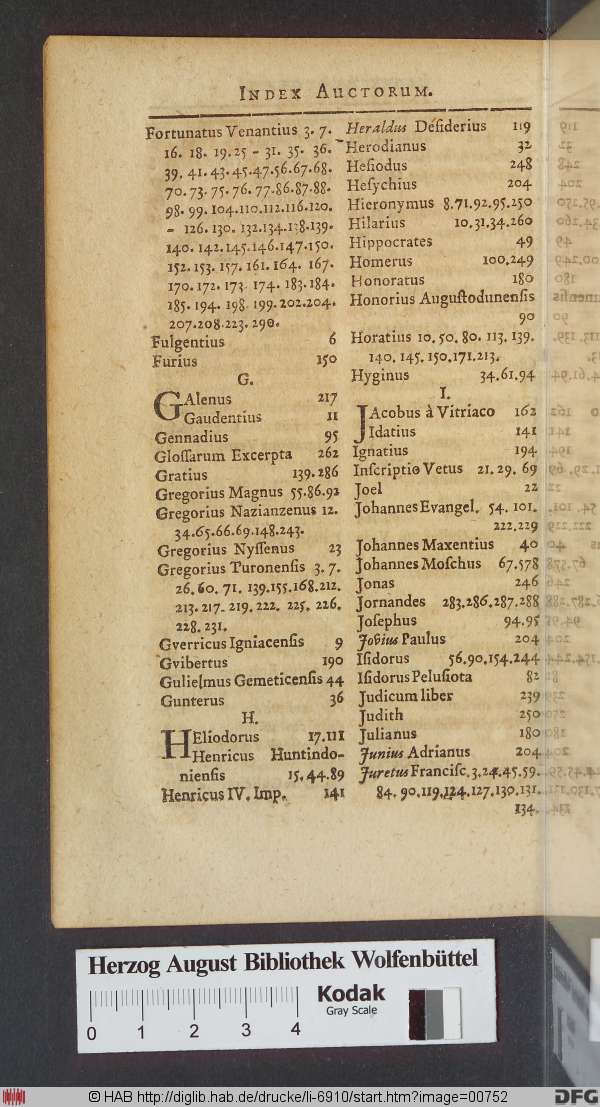 INDEX AUCTORUM.
Fortunatus Venantius 3. 7.
16. 18. 19. 25 - 31. 35. 36.
39. 41. 43. 45. 47. 56. 67. 68.
70. 73. 75. 76. 77. 86. 87. 88.
98. 99. 104. 110. 112. 116. 120.
- 126. 130. 132. 134. 138. 139.
140. 142. 145. 146. 147. 150.
152. 153. 157. 161. 164. 167.
170. 172. 173. 174. 183. 184.
185. 194. 198. 199. 202. 204.
207. 208. 223. 290.
Fulgentius 6
Furius 150
G.
GAlenus 217
Gaudentius 11
Gennadius 95
Glossarum Excerpta 262
Gratius 139. 286
Gregorius Magnus 55. 86. 92
Gregorius Nazianzenus 12.
34. 65. 66. 69. 148. 243.
Gregorius Nyssenus 23
Gregorius Turonensis 3. 7.
26. 60. 71. 139. 155. 168. 212.
213. 217. 219. 222. 225. 226.
228. 231.
Gverricus Igniacensis 9
Gvibertus 190
Gulielmus Gemeticensis 44
Gunterus 36
H.
HEliodorus 17. 111
Henricus Huntindo-
niensis 15. 44. 89
Henricus IV. Imp. 141
Heraldus Desiderius 119
Herodianus 32
Hesiodus 248
Hesychius 204
Hieronymus 8. 71. 92. 95. 250
Hilarius 10. 31. 34. 260
Hippocrates 49
Homerus 100. 249
Honoratus 180
Honorius Augustodunensis
90
Horatius 10. 50. 80. 113. 139.
140. 145. 150. 171. 213.
Hyginus 34. 61. 94
I.
JAcobus à Vitriaco 162
Idatius 141
Ignatius 194
Inscriptio Vetus 21. 29. 69
Joel 22
Johannes Evangel. 54. 101.
222. 229
Johannes Maxentius 40
Johannes Moschus 67. 578
Jonas 246
Jornandes 283. 286. 287. 288
Josephus 94. 95
Jovius Paulus 204
Isidorus 56. 90. 154. 244
Isidorus Pelusiota 82
Judicum liber 239
Judith 250
Julianus 180
Junius Adrianus 204
Juretus Francisc. 3. 24. 45. 59.
84. 90. 119. 124. 127. 130. 131.
134.
Herzog August Bibliothek Wolfenbüttel
0 1 2 3 4
Kodak
Gray Scale
© HAB http://diglib.hab.de/drucke/li-6910/start.htm?image=00752
DFG